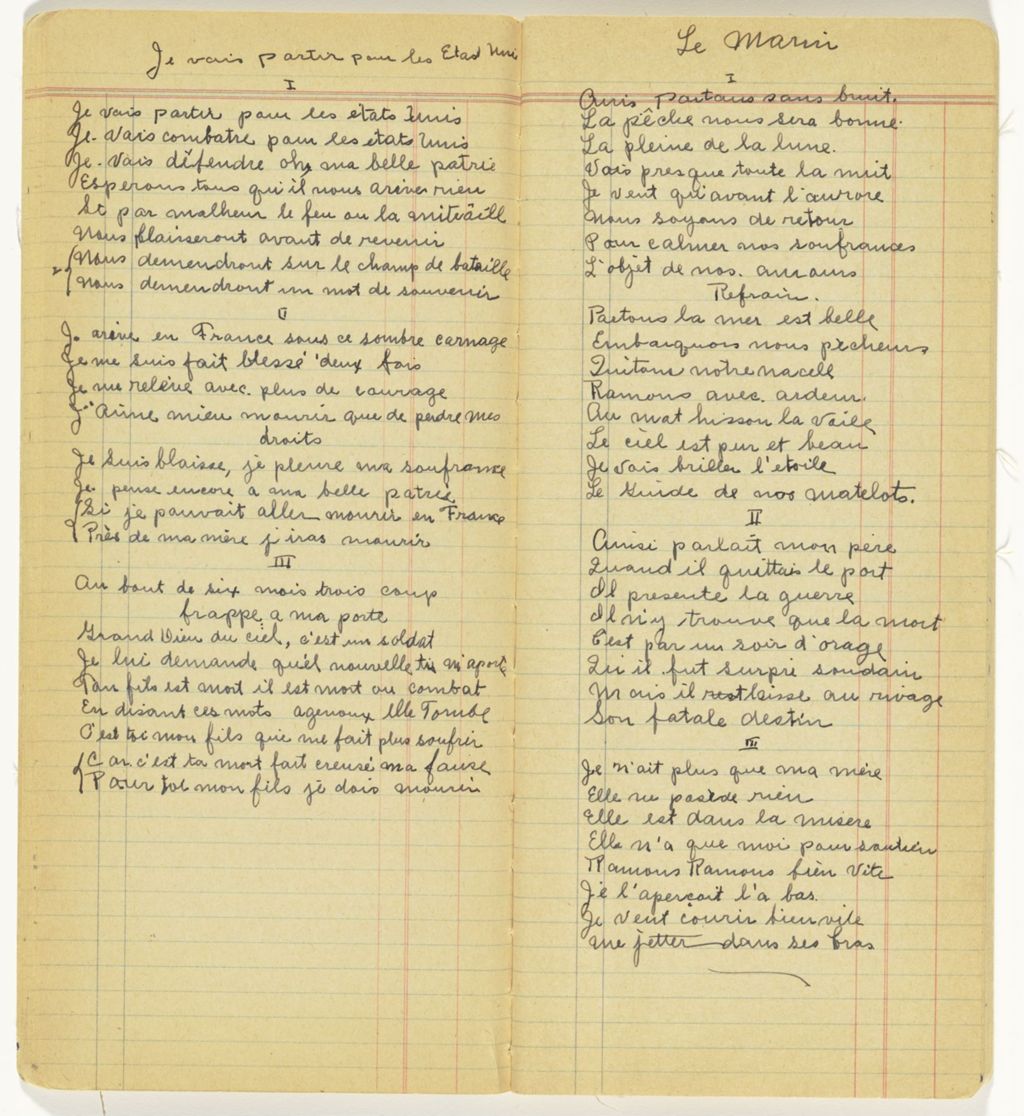 Je vais partir pour les Etas Unis
I
Je vais partir pour les états Unis
Je. Vais combatre pour les états Unis
Je. Vais défendre oh, ma belle patrie
Esperons tous qu'il nous arive rien
Si par malheur le feu ou la mitrâille
Nous blaisseront avant de revenir
2 Nous demendront sur le champ de bataille
Nous demendront un mot de souvenir
II
J. arive en France sous ce sombre carnage
Je me suis fait blessé deux fois
Je me relève avec. plus de courage
J'Aime mieu mourir que de perdre mes
droits
Je suis blaisse, je pleure ma soufrance
Je. pense encore a ma belle patrie
Si je pouvait aller mourir en France
Près de ma mère j'iras mourir
III
Au bout de six mois trois coup
frappe a ma porte
Grand Dieu du ciel, c'est un soldat
Je lui demande quél nouvelle tu m'aporte
Ton fils est mort il est mort au combat
En disant ces mots agenoux Elle Tombe
C'est toi mon fils que me fait plus soufrir
Car c'est ta mort fait creusé ma fause
Pour toi mon fils je dois mourir
Le Marin
I
Amis partons sans bruit.
La pêche nous sera bonne.
La pleine de la lune.
Vois presque toute la nuit
Je veut qu'avant l'aurore
Nous soyons de retour
Pour calmer nos soufrances
L'objet de nos. amours
Refrain.
Partons la mer est belle
Embarquons nous pecheurs
Quitons notre nacelle
Ramons avec. ardeur.
Au mat hisson la voile
Le ciel est pur et beau
Je vois briller l'etoile
Le Guide de nos matelots.
II
Ainsi parlait mon père
Quand il quittais le port
Il presente la guerre
Il n'y trouve que la mort
C'est par un soir d'orage
Qui il fut surpri soudain
Mais il rest laisse au rivage
Son fatale destin
III
Je n'ait plus que ma mère
Elle ne posède rien
Elle est dans la misere
Elle n'a que moi pour soutien
Ramons Ramons bien vite
Je l'aperçoit l'a bas.
Je veut courir bien vite
me jetter dans ses bras